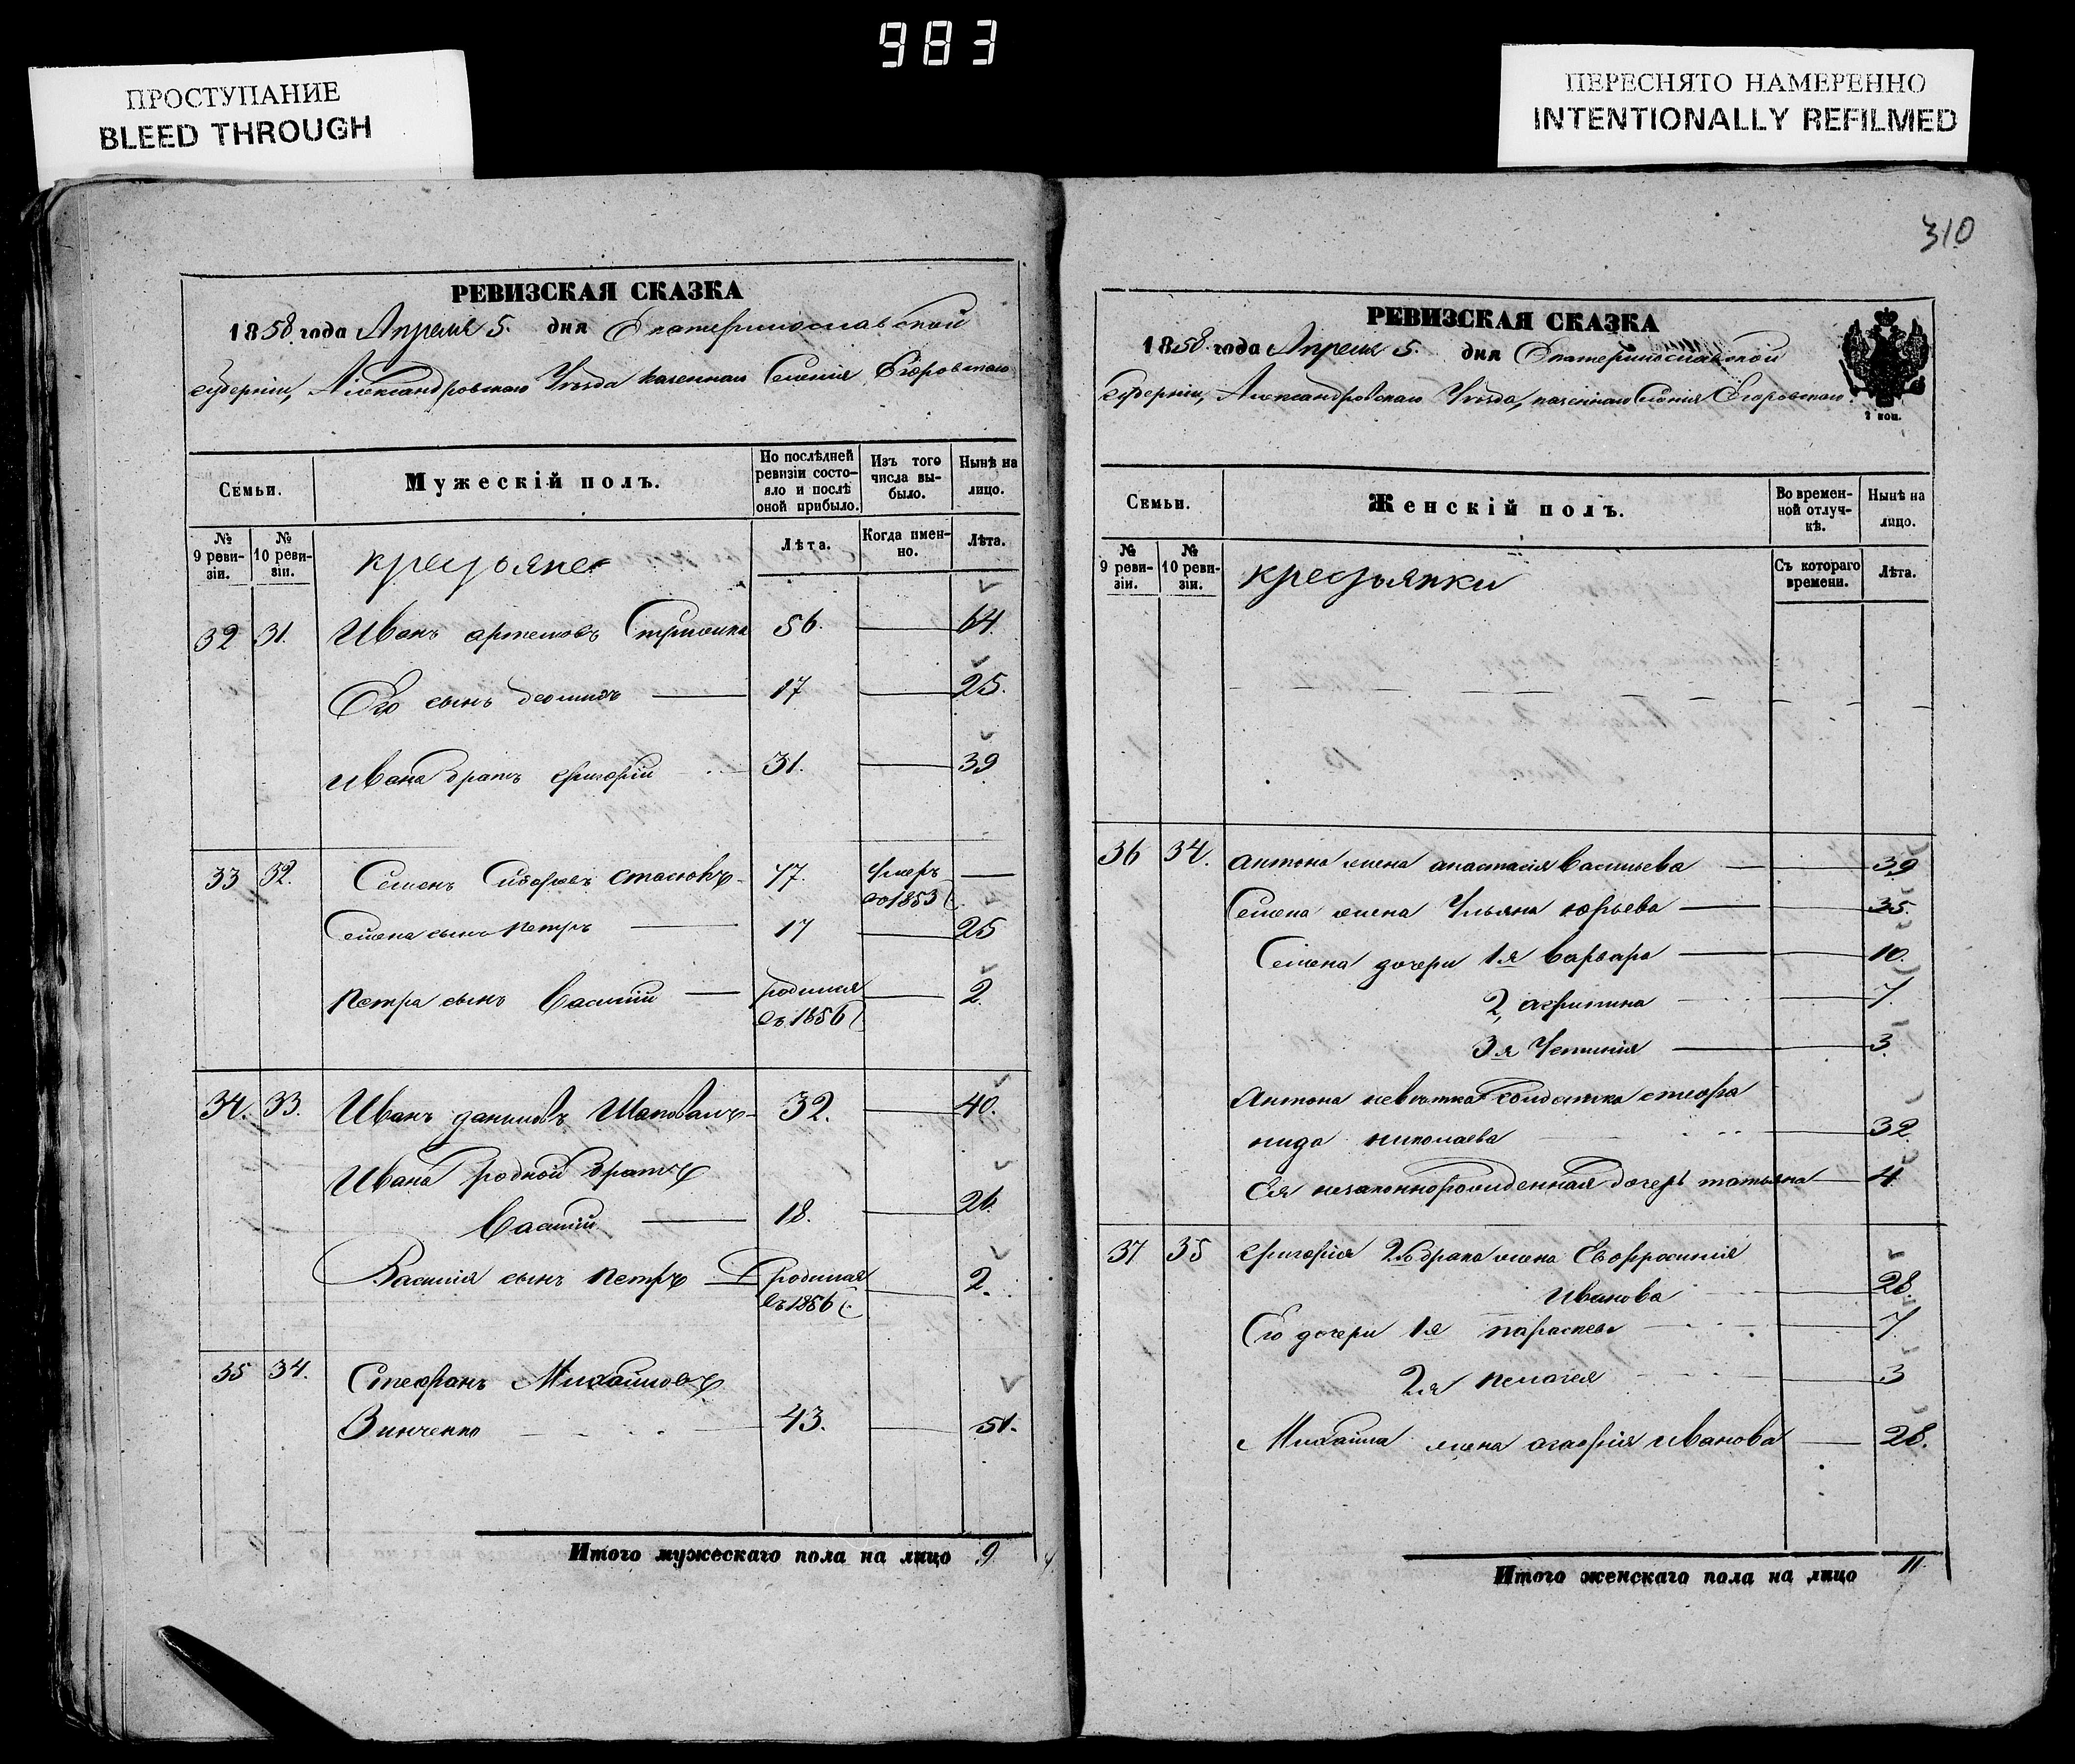 983
ПРОСТУПАНИЕ
BLEED THROUGH
ПЕРЕСНЯТО НАМЕРЕННО
INTENTIONALLY REFILMED
РЕВИЗСКАЯ СКАЗКА
1858 года Апреля 5. дня Екатеринославской
губерніи, Александровскаго Уѣзда казеннаго Селенія Егоровскаго
Семьи.
Мужескій полъ.
По послѣдней ревизіи состояло и послѣ оной прибыло.
Изъ того числа выбыло.
Нынѣ на лицо.
№ 9 ревизіи.
№ 10 ревизіи.
крестьяне
Лѣта.
Когда именно.
Лѣта.
32 31. Иванъ артемовъ 56. 64.
Его сынъ 17 25.
Ивана братъ григорій 31. 39
33 32. Семенъ Сидоровъ 47. Умеръ
въ 1853
Семена сынъ петръ 17 25
петра сынъ Василій родился 2.
въ 1856
34. 33. Иванъ даниловъ Шаповалъ 32. 40.
Ивана родной братъ
Василій 18. 26.
Василія сынъ петръ родился 2.
въ 1856
35 34. Стефанъ Михайловъ
Зинченко 43. 51.
Итого мужескаго пола на лицо 9
310
РЕВИЗСКАЯ СКАЗКА
1858 года Апреля 5. дня Екатеринославской
губерніи, Александровскаго Уѣзда, казеннаго Селенія Егоровскаго.
2 коп.
Семьи.
Женскій полъ.
Во временной отлучкѣ.
Нынѣ на лицо.
№ 9 ревизіи.
№ 10 ревизіи.
крестьянки
Съ котораго времени.
Лѣта.
36 34. антона жена анастасія васильева 39
Семена жена Ульяна юрьева 35.
Семена дочери 1я варвара 10.
2, агрипина 7.
3я Устинія 3.
Антона невѣстка солдатка стефа
нида николаева 32.
Ея незаконнорожденная дочерь татьяна 4
37 35 григорія 2го брака жена Евфросинія
Иванова 28.
Его дочери 1я параскева 7.
2я пелагея 3
Михаила жена агафія иванова 28.
Итого женскаго пола на лицо 11